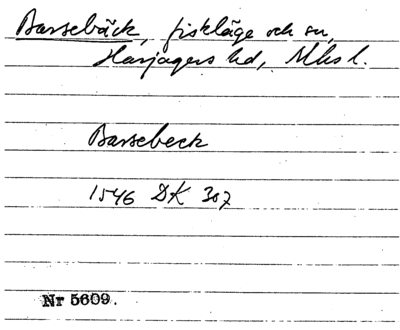 Barsebäck, fiskläge och sn,
Harjagers hd, Mhs l.
Barsebeck
1546 DK 307
Nr 5609.